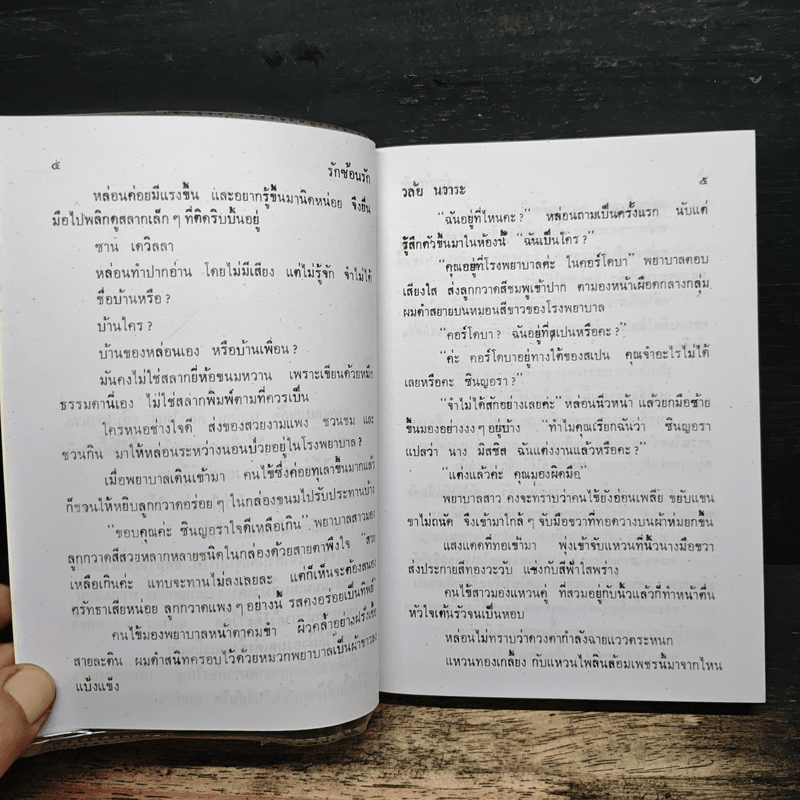 ๔ รักซ้อนรัก
หล่อนค่อยมีแรงขึ้น และอยากรู้ขึ้นมานิดหน่อย จึงยื่น
มือไปพลิกดูสลากเล็กๆ ที่ติดริบบิ้นอยู่
ซาน เดวิลลา
หล่อนทำปากอ่าน โดยไม่มีเสียง แต่ไม่รู้จัก จำไม่ได้
ชื่อบ้านหรือ?
บ้านใคร?
บ้านของหล่อนเอง หรือบ้านเพื่อน?
มันคงไม่ใช่สลากยี่ห้อขนมหวาน เพราะเขียนด้วยหมึก
ธรรมดานี่เอง ไม่ใช่สลากพิมพ์ตามที่ควรเป็น
ใครหนอช่างใจดี ส่งของสวยงามแพง ชวนชม และ
ชวนกิน มาให้หล่อนระหว่างนอนป่วยอยู่ในโรงพยาบาล?
เมื่อพยาบาลเดินเข้ามา คนไข้ซึ่งค่อยทุเลาขึ้นมากแล้ว
ก็ชวนให้หยิบลูกกวาดอร่อยๆ ในกล่องขนมไปรับประทานบ้าง
"ขอบคุณค่ะ ซินญอราใจดีเหลือเกิน" พยาบาลสาวมอง
ลูกกวาดสีสวยหลากหลายชนิดในกล่องด้วยสายตาพึงใจ "สวย
เหลือเกินค่ะ แทบจะทานไม่ลงเลยละ แต่ก็เห็นจะต้องสนอง
ศรัทธาเสียหน่อย ลูกกวาดแพงๆ อย่างนี้ รสคงอร่อยเป็นทิพย์"
คนไข้มองพยาบาลหน้าตาคมขำ ผิวคล้ำอย่างฝรั่งเชื้อ
สายละติน ผมดำสนิทครอบไว้ด้วยหมวกพยาบาลเป็นผ้าขาวลง
แป้งแข็ง
วลัย นวาระ ๕
"ฉันอยู่ที่ไหนคะ?" หล่อนถามเป็นครั้งแรก นับแต่
รู้สึกตัวขึ้นมาในห้องนี้ "ฉันเป็นใคร?"
"คุณอยู่ที่โรงพยาบาลค่ะ ในคอร์โดบา" พยาบาลตอบ
เสียงใส ส่งลูกกวาดสีชมพูเข้าปาก ตามองหน้าเผือดกลางกลุ่ม
ผมดำสยายบนหมอนสีขาวของโรงพยาบาล
"คอร์โดบา? ฉันอยู่ที่สเปนหรือคะ?"
"ค่ะ คอร์โดบาอยู่ทางใต้ของสเปน คุณจำอะไรไม่ได้
เลยหรือคะ ซินญอรา?"
"จำไม่ได้สักอย่างเลยค่ะ" หล่อนนิ่วหน้า แล้วยกมือซ้าย
ขึ้นมองอย่างงงๆ อยู่บ้าง "ทำไมคุณเรียกฉันว่า ซินญอรา
แปลว่า นาง มิสซิส ฉันแต่งงานแล้วหรือคะ?"
"แต่งแล้วค่ะ คุณมองผิดมือ"
พยาบาลสาว คงจะทราบว่าคนไข้ยังอ่อนเพลีย ขยับแขน
ขาไม่ถนัด จึงเข้ามาใกล้ๆ จับมือขวาที่ทอดวางบนผ้าห่มยกขึ้น
แสงแดดที่ทอเข้ามา พุ่งเข้าจับแหวนที่นิ้วนางมือขวา
ส่งประกายสีทองวะวับ แข่งกับสีฟ้าใสพร่าง
คนไข้สาวมองแหวนคู่ ที่สวมอยู่กับนิ้วแล้วก็ทำหน้าตื่น
หัวใจเต้นรัวจนเป็นหอบ
หล่อนไม่ทราบว่าดวงตากำลังฉายแววตระหนก
แหวนทองเกลี้ยง กับแหวนไพลินล้อมเพชรนี้มาจากไหน